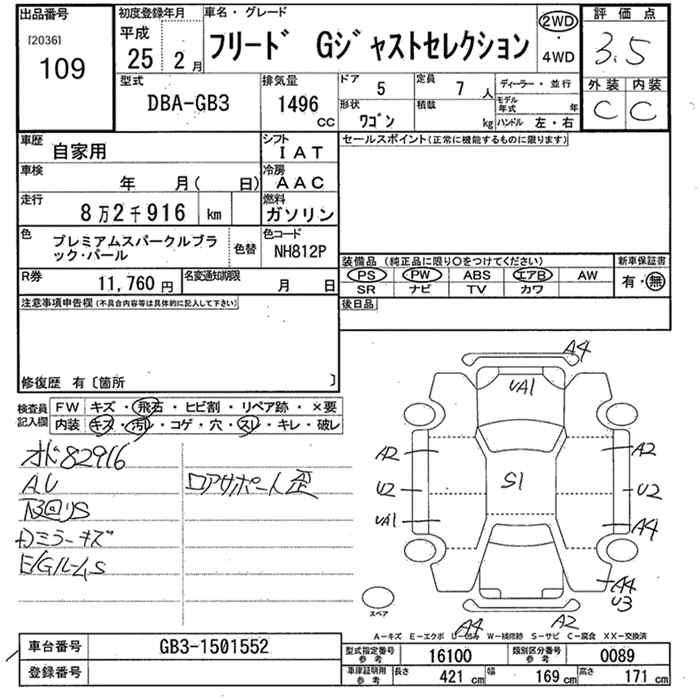 出品番号
[2036]
109
初度登録年月
平成
25 2月
車名・グレード
フリード Gジャストセレクション
2WD
・
4WD
評価点
3.5
外装 内装
C C
型式
DBA-GB3
排気量
1496 cc
ドア
5
形状
ワゴン
定員
7 人
積載
kg
ディーラー・並行
モデル年式 年
ハンドル 左・右
車歴
自家用
シフト
IAT
車検
年 月( 日)
冷房
AAC
走行
8万2千916 km
燃料
ガソリン
色
プレミアムスパークルブラック・パール
色替
色コード
NH812P
R券
11,760 円
名変通知期限
月 日
セールスポイント(正常に機能するものに限ります)
装備品(純正品に限り○をつけてください)
PS PW ABS エアB AW
SR ナビ TV カワ
新車保証書
有・無
後日品
注意事項申告欄(不具合内容等は具体的に記入して下さい)
修復歴 有〔箇所 〕
検査員記入欄
FW キズ・飛石・ヒビ割・リペア跡・×要
内装 キズ・汚レ・コゲ・穴・スレ・キレ・破レ
オド82916
AU
下回りS
ロアサポート歪
ドアミラーキズ
E/GルームS
A4
UA1
A2
A2
S1
U2
U2
UA1
A4
A4
U3
A4
A2
スペア
A−キズ E−エクボ U−凹み W−補修跡 S−サビ C−腐食 XX−交換済
車台番号
GB3-1501552
登録番号
型式指定番号 参考
16100
類別区分番号 参考
0089
車庫証明用 参考
長さ 421 cm
幅 169 cm
高さ 171 cm